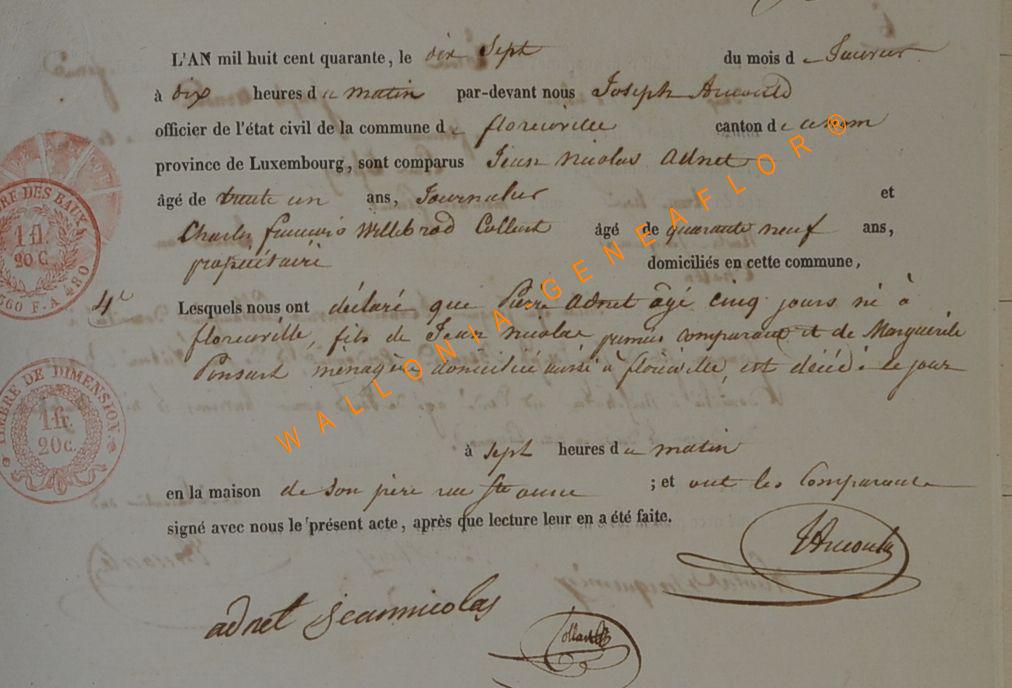 L'AN mil huit cent quarante, le dix Sept du mois de Janvier
à dix heures du matin par-devant nous Joseph
officier de l'état civil de la commune de florenville canton de
province de Luxembourg, sont comparus Jean Nicolas Adnet
âgé de trente un ans, Journalier et
Charles françois Willebrod Collart âgé de quarante neuf ans,
propriétaire domiciliés en cette commune,
4e Lesquels nous ont déclaré que Pierre Adnet âgé cinq jours né à
florenville, fils de Jean Nicolas premier comparant et de Marguerite
Ponsart ménagère domiciliée aussi à florenville, est décédé le jour
à sept heures du matin
en la maison de Son père rue Ste anne ; et ont les Comparants
signé avec nous le présent acte, après que lecture leur en a été faite.
adnet jeannicolas
Collart
TIMBRE DES
1 fl.
20 C.
560 F. A 480
TIMBRE DE DIMENSION.
1 fr.
20 c.
WALLONIA-GENEAFLOR ®